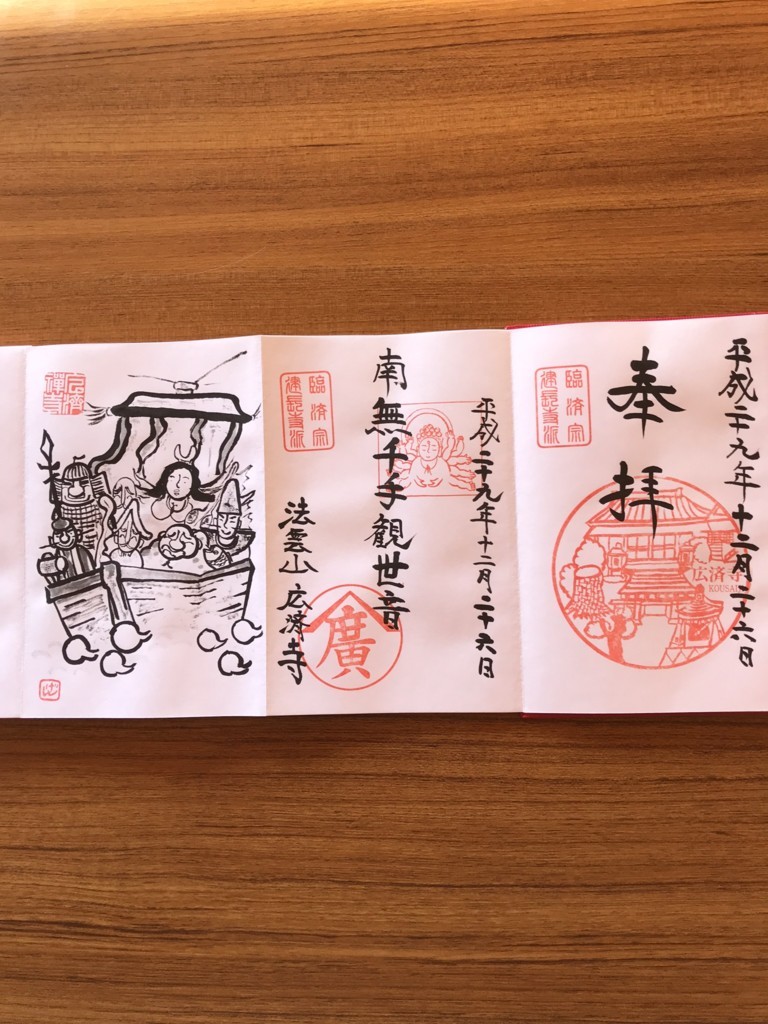 奉拝
平成二十九年十二月二十六日
臨済宗
建長寺派
広済寺
KOUSAI
平成二十九年十二月二十六日
南無千手観世音
法雲山広済寺
臨済宗
建長寺派
廣
広済
禅寺